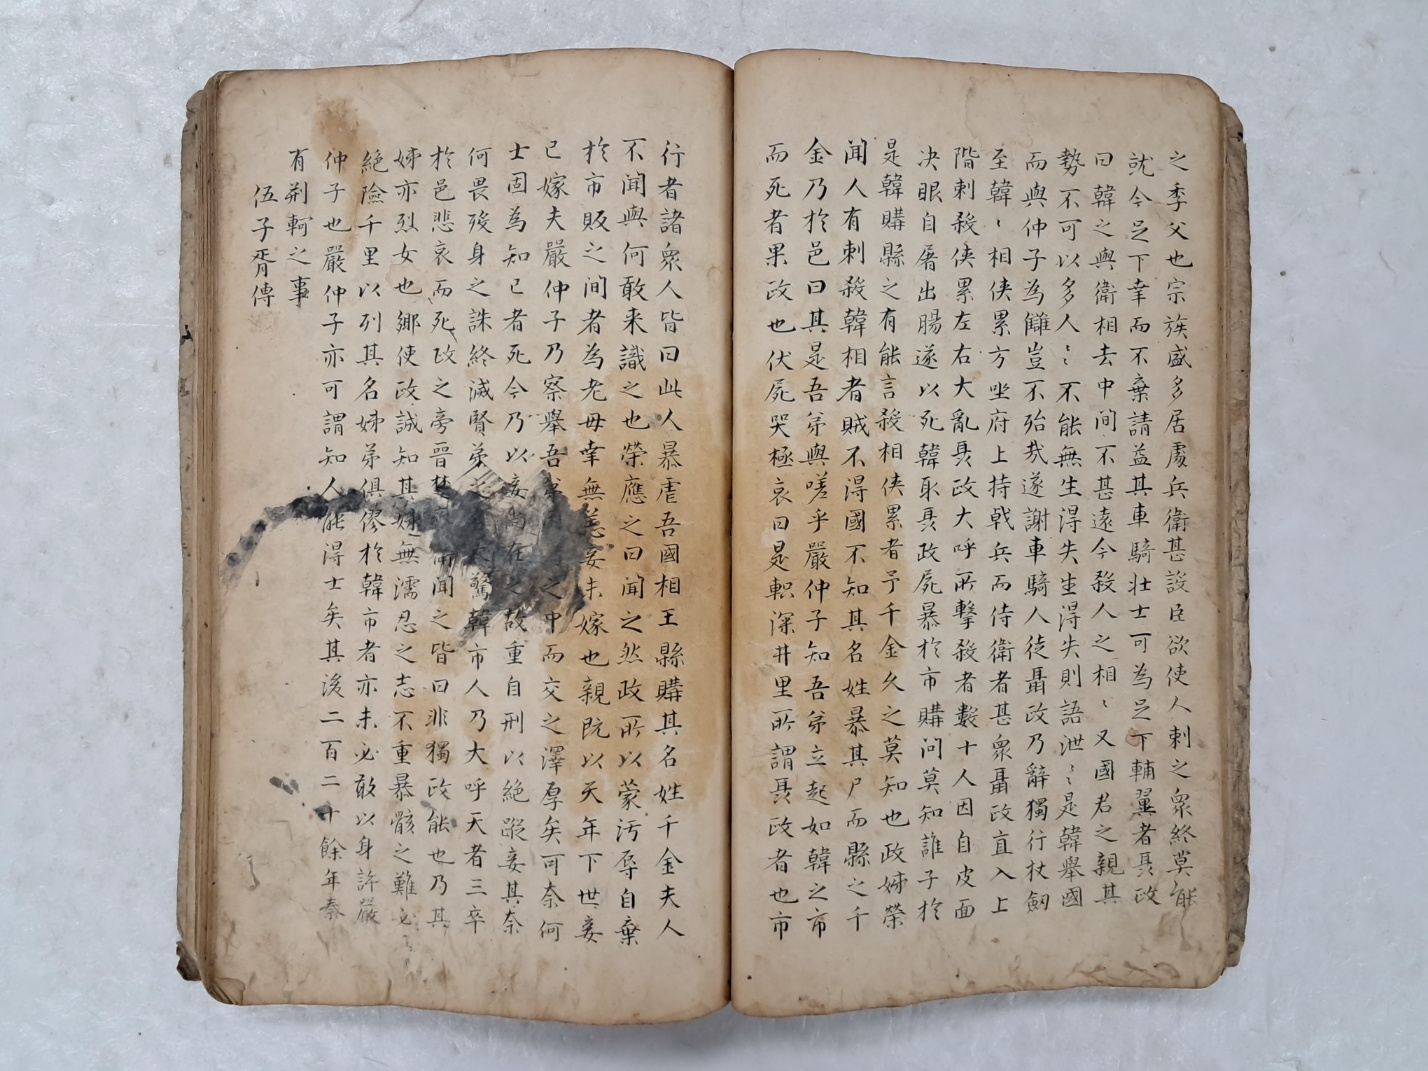 之季父也宗族盛多居處兵衛甚設臣欲使人刺之衆終莫能
就今足下幸而不棄請益其車騎壯士可為足下輔翼者聶政
曰韓之與衛相去中間不甚遠今殺人之相〻又國君之親其
勢不可以多人〻不能無生得失生得失則語泄〻是韓舉國
而與仲子為讎豈不殆哉遂謝車騎人徒聶政乃辭獨行杖劒
至韓〻相俠累方坐府上持戟兵而侍衛者甚衆聶政直入上
階刺殺俠累左右大亂聶政大呼所擊殺者數十人因自皮面
决眼自屠出腸遂以死韓取聶政屍暴於市購问莫知誰子於
是韓購縣之有能言殺相俠累者予千金久之莫知也政姊榮
闻人有刺殺韓相者賊不得國不知其名姓暴其尸而縣之千
金乃於邑曰其是吾弟與嗟乎嚴仲子知吾弟立起如韓之市
而死者果政也伏屍哭極哀曰是軹深井里所謂聶政者也市
行者諸衆人皆曰此人暴虐吾國相王縣購其名姓千金夫人
不闻與何敢来識之也榮應之曰闻之然政所以蒙汚辱自棄
於市販之间者為老母幸無恙妾未嫁也親既以天年下世妾
已嫁夫嚴仲子乃察舉吾之中而交之澤厚矣可奈何
士固為知已者死今乃以妾尚在之故重自刑以絶蹤妾其奈
何畏殁身之誅終滅賢弟驚韓市人乃大呼天者三卒
於邑悲哀而死政之旁晉楚闻之皆曰非獨政能也乃其
姊亦烈女也鄉使政誠知其姊無濡忍之志不重暴骸之難必
絶險千里以列其名姊弟俱僇於韓市者亦未必敢以身許嚴
仲子也嚴仲子亦可謂知人能得士矣其後二百二十餘年秦
有荆軻之事
伍子胥傳